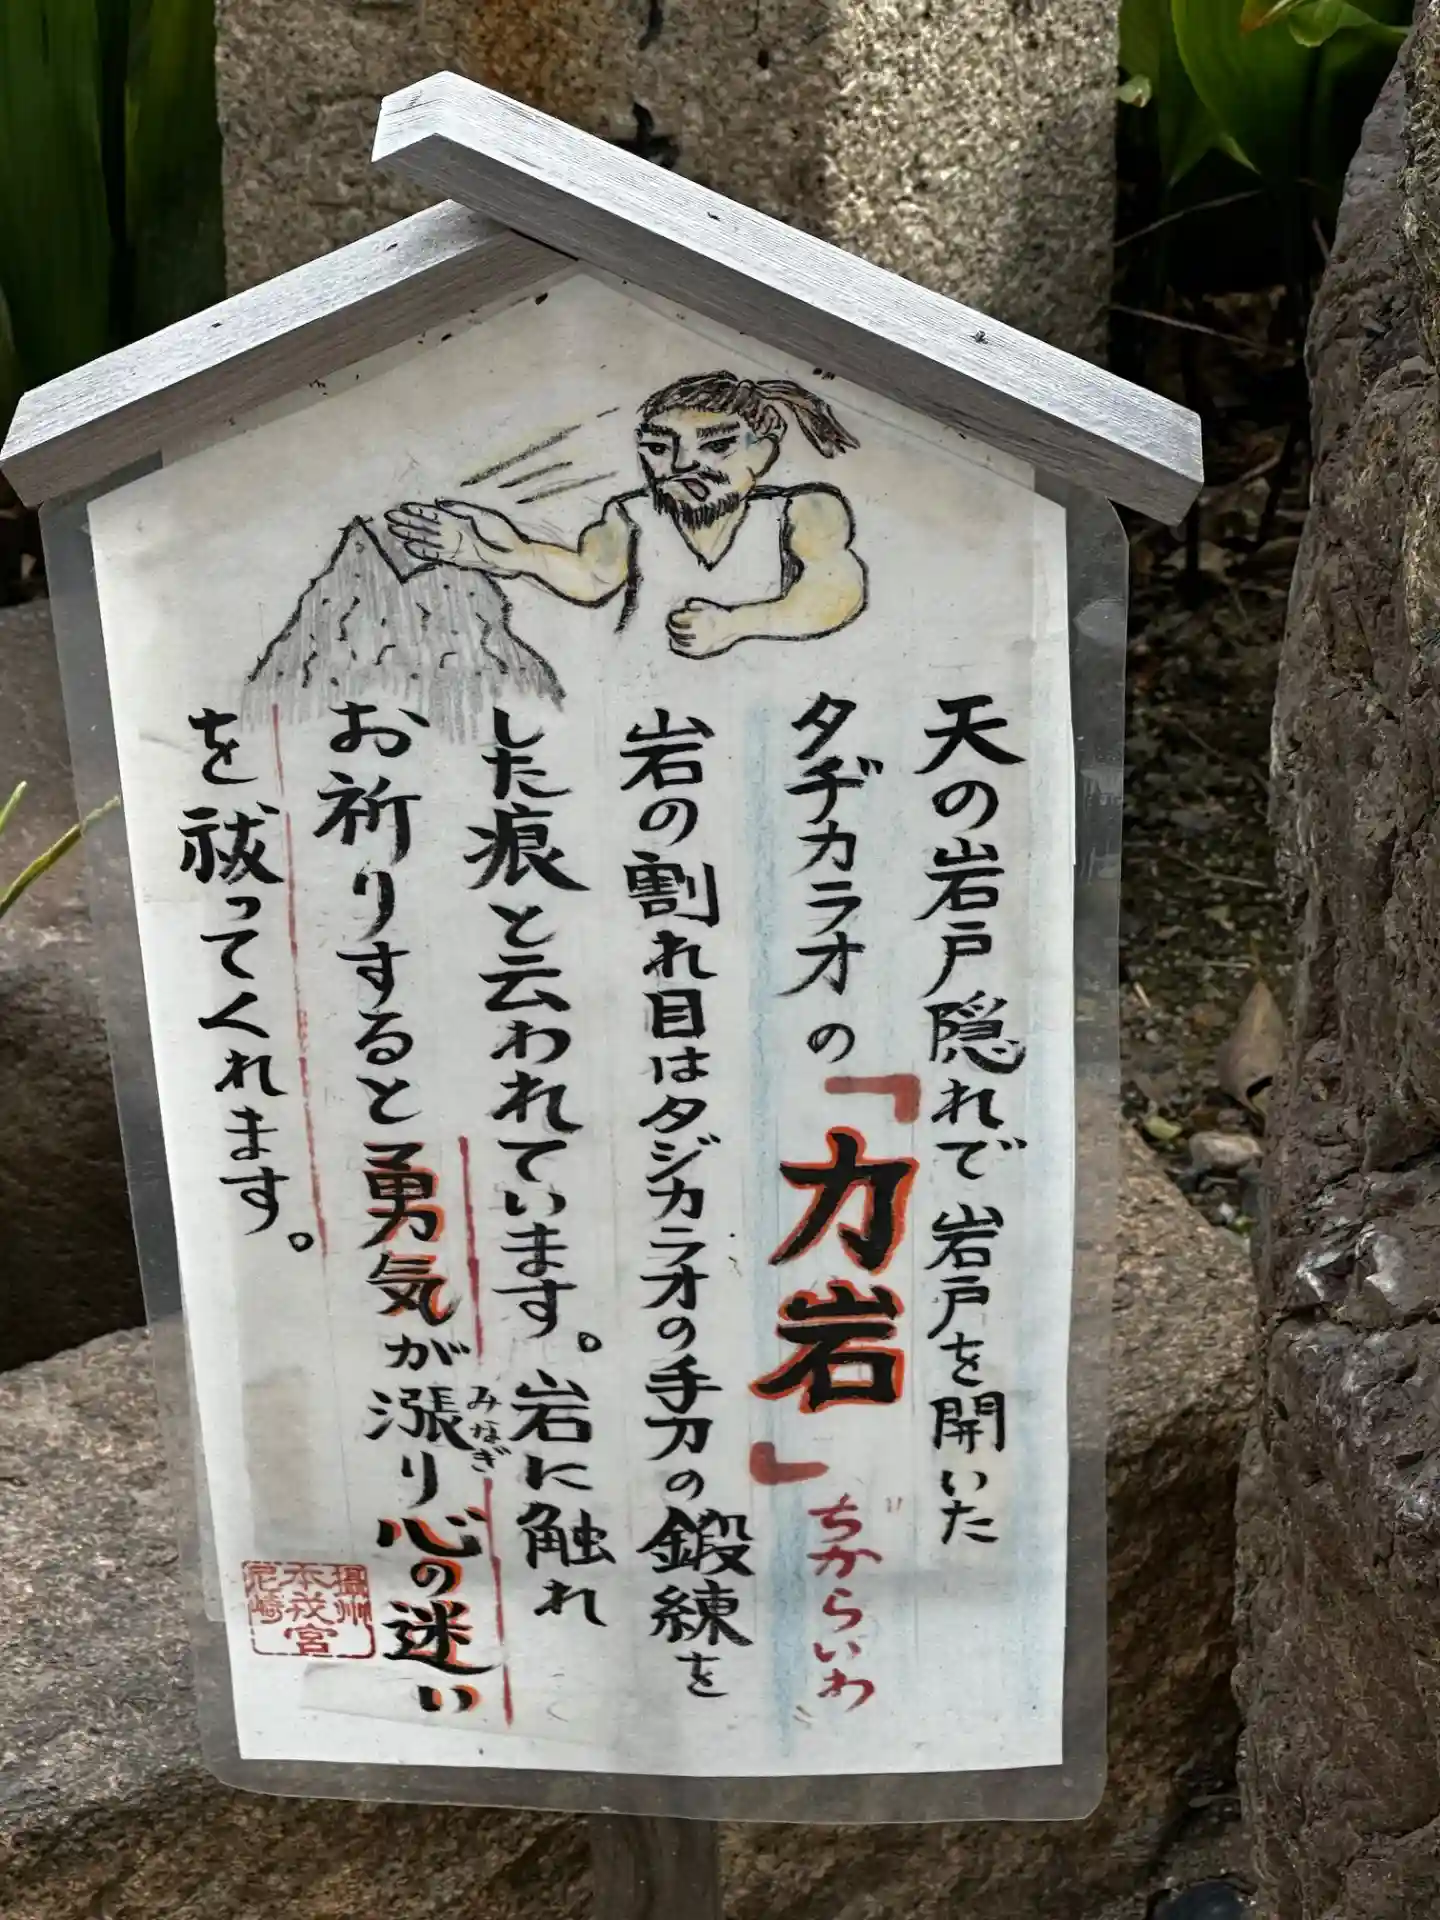 天の岩戸隠れで岩戸を開いた
タヂカラオの「力岩」ぢからいわ
岩の割れ目はタジカラオの手刀の鍛練を
した痕と云われています。岩に触れ
お祈りすると勇気が漲り心の迷い
みなぎ
を祓ってくれます。
摂州
本戎宮
尼崎